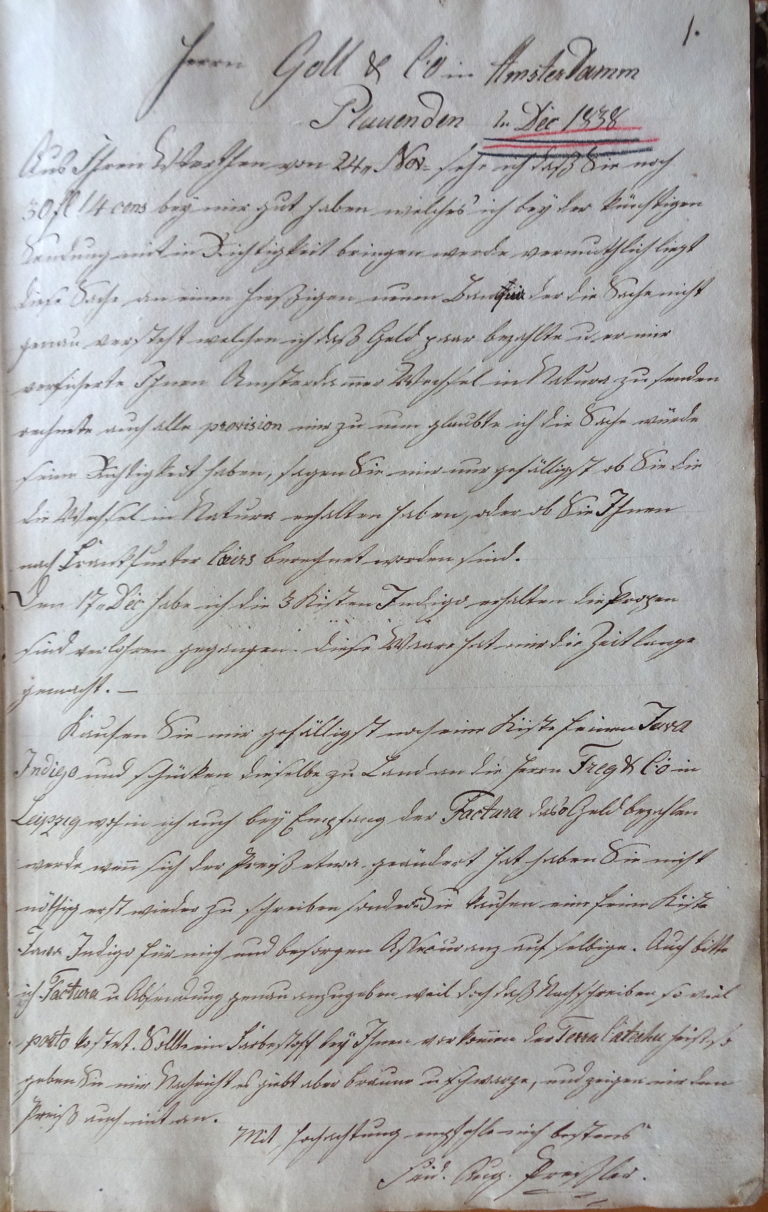 1.
Herrn Goll & Co in Amsterdamm
Plauen den Dec 1838
Aus Ihren Werthen von 24n Nov. sehe ich daß Sie noch
30 fl 14 cens bey mir gut haben welches ich bey der künftigen
Sendung mit in Richtigkeit bringen werde vermuthlich liegt
diese Sache an einen hießigen neuen Banquie der die Sache nicht
genau versteht welchen ich das Geld paar bezahlte u. er mir
versicherte Ihnen Amsterdammer Wechsel in Natura zu senden
rechnete auch alle provision mir zu nun glaubte ich die Sache würde
seine Richtigkeit haben, sagen Sie mir nur gefälligst ob Sie die
die Wechsel in Natura erhalten haben, oder ob Sie Ihnen
nach Frankfurter Cours berechnet worden sind.
Den 17n Dec habe ich die 3 Kisten Indigo erhalten die Proben
sind verlohren gegangen. diese Waare hat mir die Zeit lange
gemacht. –
Kaufen Sie mir gefälligst noch eine Kiste feinen Java
Indigo und schücken dieselbe zu Land an die Herrn Freg & Co in
Leipzig wohin ich auch bey Empfang der Factura das Geld bezahlen
werde wenn sich der Preiß etwa geändert hat haben Sie nicht
nöthig erst wieder zu schreiben sondern Sie kaufen eine feine Kiste
Java Indigo für mich und besorgen Assecuranz auf selbige. Auch bitte
ich Factura u Absendung genau anzugeben weil doch daß Nachschreiben so viel
porto kostet. Sollte ein Farbestoff bey Ihnen vorkommen der Terra Catechu heist, so
geben Sie mir Nachricht es giebt aber braune u schwarze, und zeigen mir den
Preiß auch mit an.
Mit Hochachtung empfehle mich bestens
Aug. Pressler.